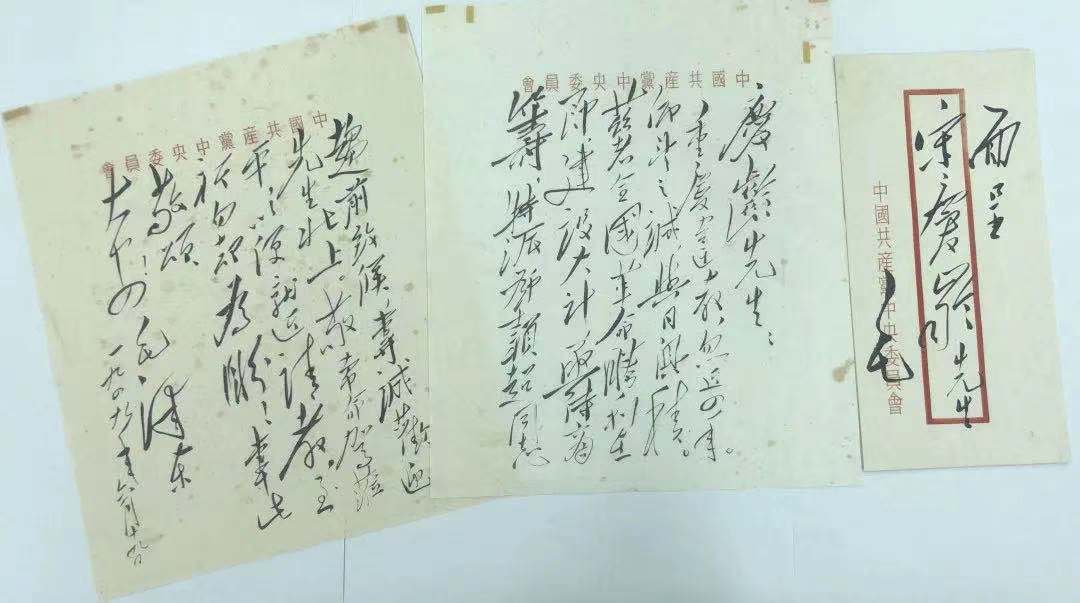 面呈
宋慶齡先生
毛
中國共產黨中央委員會
中國共產黨中央委員會
慶齡先生：
重慶違教，忽近四年。
仰望之誠，與日俱積。
茲者全國革命勝利在
即，建設大計，亟待商
籌，特派鄧穎超同志
中國共產黨中央委員會
趨前致候，專誠歡迎
先生北上。敬希命駕蒞
平，以便就近請教，至
祈勿却為盼！專此
敬頌
大安！毛澤东
一九四九年六月十九日